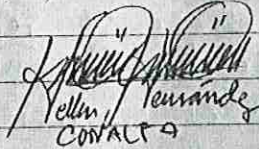 Hellen Hernández
CONALFA